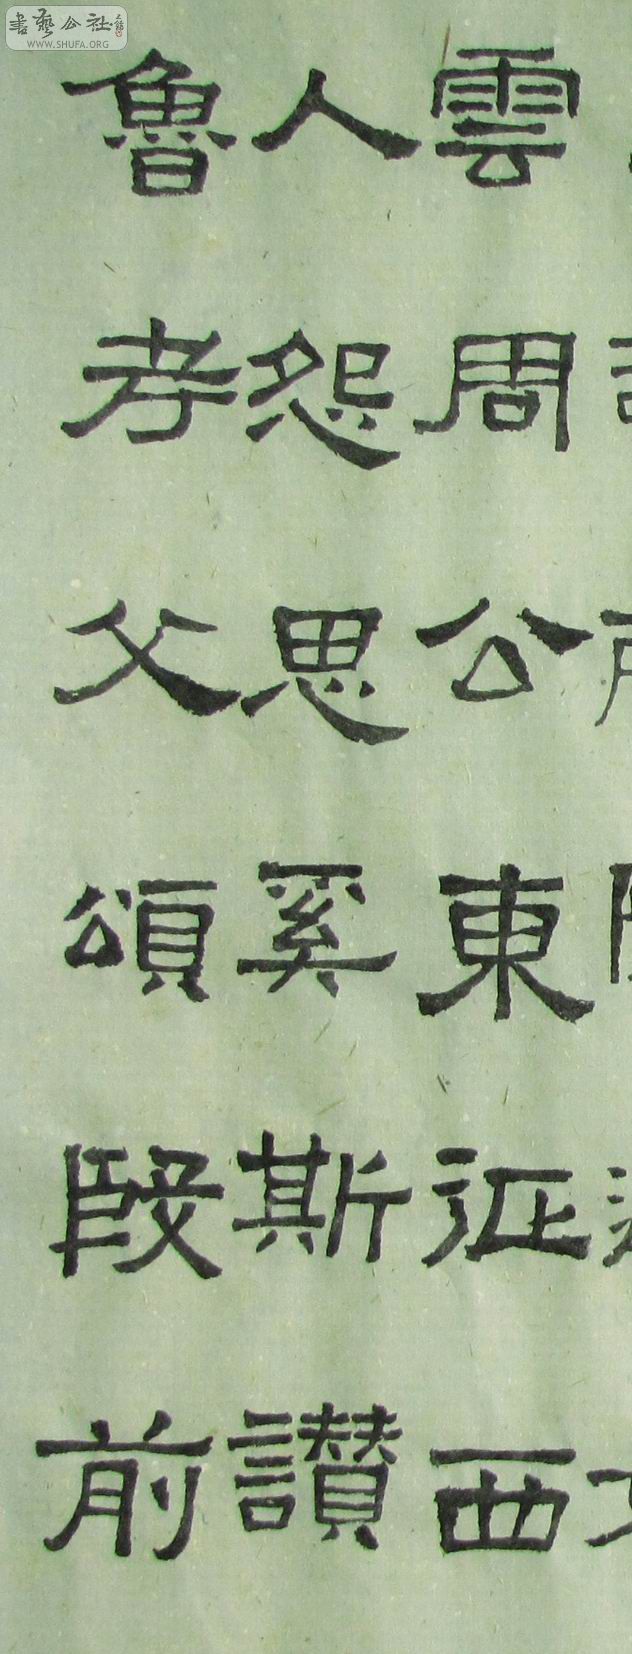 書藝公社
WWW.SHUFA.ORG
雲周公東征西
人怨思奚斯讚
魯考父頌殷前